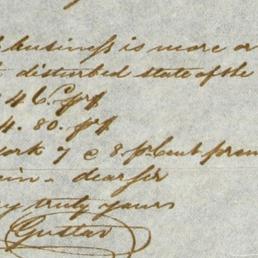 business is more or
disturbed state of the
46.
4. 80.
York 7 @ 8 p Cent prem
dear sir
truly yours
Gustav